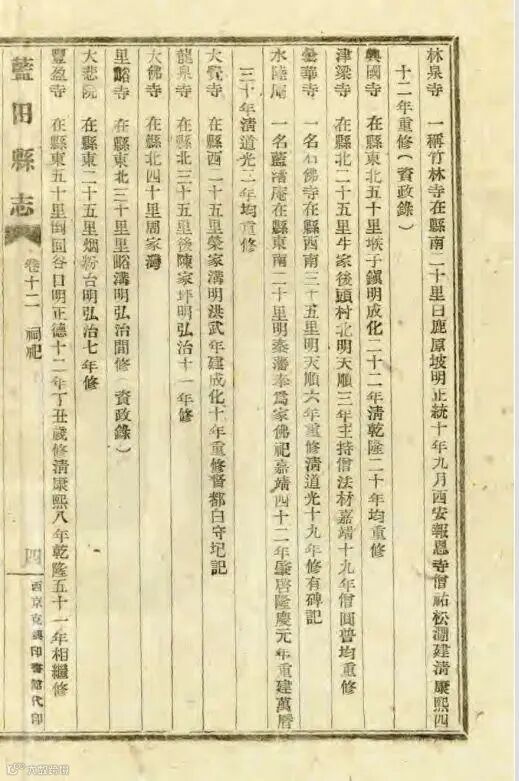 林泉寺 一稱竹林寺在縣南二十里白鹿原坡明正統十年九月西安報恩寺僧祐松潮建清康熙四
十二年重修(資政錄)
興國寺 在縣東北五十里堠子鎮明成化二十二年清乾隆二十年均重修
津梁寺 在縣北二十五里牛家後頭村北明天順三年主持僧法材嘉靖十九年僧圓普均重修
曇華寺 一名石佛寺在縣西南三十五里明天順六年重修清道光十九年修有碑記
水陸庵 一名藍渚庵在縣東南二十里明秦藩奉爲家佛祀嘉靖四十二年肇啓隆慶元年重建萬曆
三十年清道光二年均重修
大覺寺 在縣西二十五里榮家溝明洪武年建成化十年重修督都白守圮記
龍泉寺 在縣北三十五里後陳家坪明弘治十一年修
大佛寺 在縣北四十里周家灣
里峪寺 在縣東北三十里里峪溝明弘治間修 資政錄)
大悲院 在縣東二十五里烟粉台明弘治七年修
豐盈寺 在縣東五十里倒囬谷口明正德十二年丁丑歲修清康熙八年乾隆五十一年相繼修
藍田縣志
卷十二 祠祀
四
西京克興印書館代印